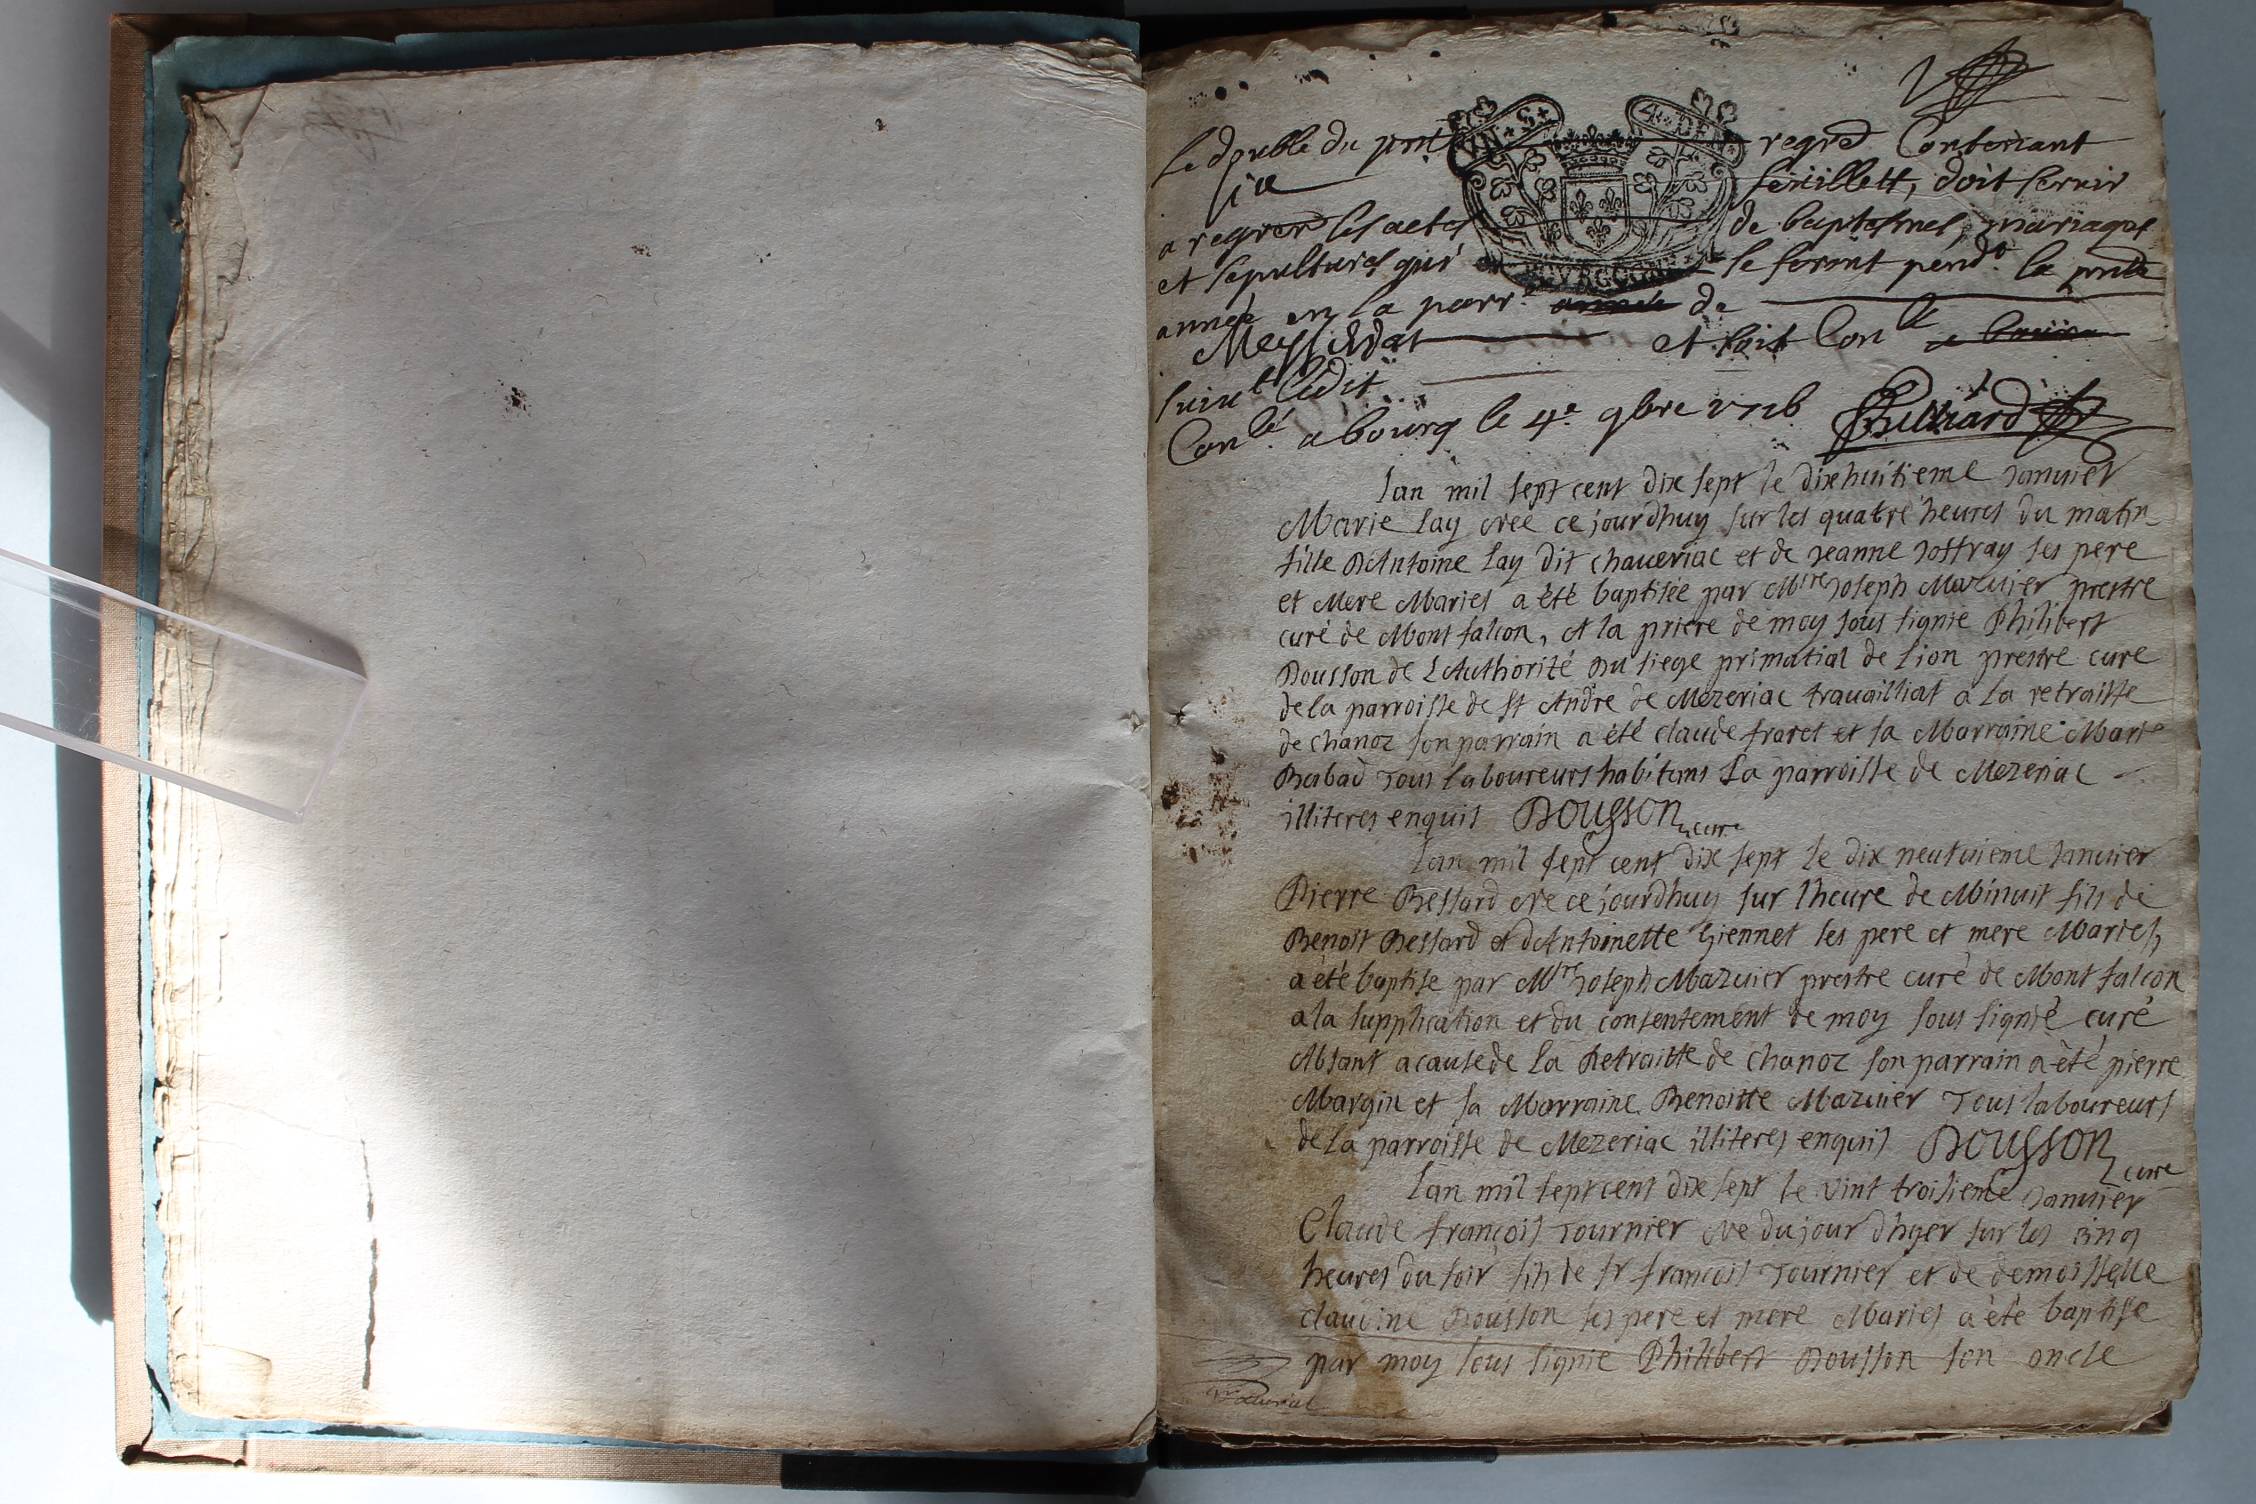 Le double du pnt regre contenant
six feuillett, doit servir
a regrer les actes de baptesmes, mariages
et sepultures qui se feront pend.t la pnte
année en la parr.e de
Meysseriat et soit Con.lé
suiv.t Ledit
Con.lé a bourg le 4.e 9bre 1716
UN · S · 4 · DEN ·
lan mil sept cent dix sept le dixhuitieme Janvier
Marie lay née ce jourdhuy sur les quatre heures du matin
fille D'Antoine lay dit chaveriac et de Jeanne Joffray ses pere
et Mere Maries a été baptisée par Mre Joseph Mazuier prestre
curé de Montfalcon, et la priere de moy sous signié Philibert
Dousson de L'Authorité Du siege primatial de Lion prestre curé
de la parroisse de St André de Mezeriac travailliat a la retraitte
de chanoz son parrain a été claude fraret et sa Marraine Marie
Babad Tous laboureurs habitans La parroisse de Mezeriac
illiteres enquis Dousson curé
lan mil sept cent dix sept le dix neufvieme Janvier
Pierre Bessard né ce jourdhuy sur lheure de Minuit fils de
Benoit Bessard et d'Antoinette Giennet ses pere et mere Maries,
a été baptise par Mre Joseph Mazuier prestre curé de Montfalcon
a la supplication et du consentement de moy sous signié curé
Absant a cause de La Retraitte de chanoz son parrain a été pierre
Margin et sa Marraine Benoitte Mazuier Tous laboureurs
de la parroisse de Mezeriac illiteres enquis Dousson curé
lan mil sept cent dix sept le vint troisieme Janvier
Claude françois Tournier né du jour d'hyer sur les cinq
heures du soir fils de sr françois Tournier et de demoisselle
claudine Dousson ses pere et mere Maries a été baptise
par moy sous signié Philibert Dousson son oncle